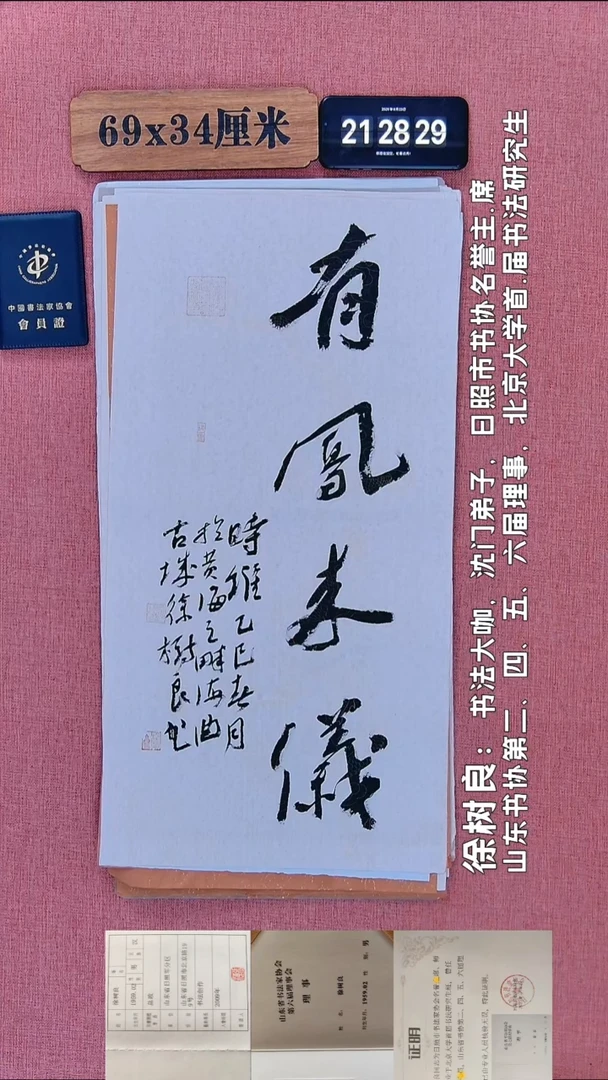 69x34厘米
21 28 29
中國書法家協會
會員證
有鳳来儀
時維乙巳春月
於黄海之畔海曲
古城徐樹良书
徐树良：书法大咖，沈门弟子，日照市书协名誉主.席
山东书协第二、四、五、六届理事，北京大学首.届书法研究生
山东省书法家协会
第六届理事会
理事
徐树良
1959.02
男
2009年
证明